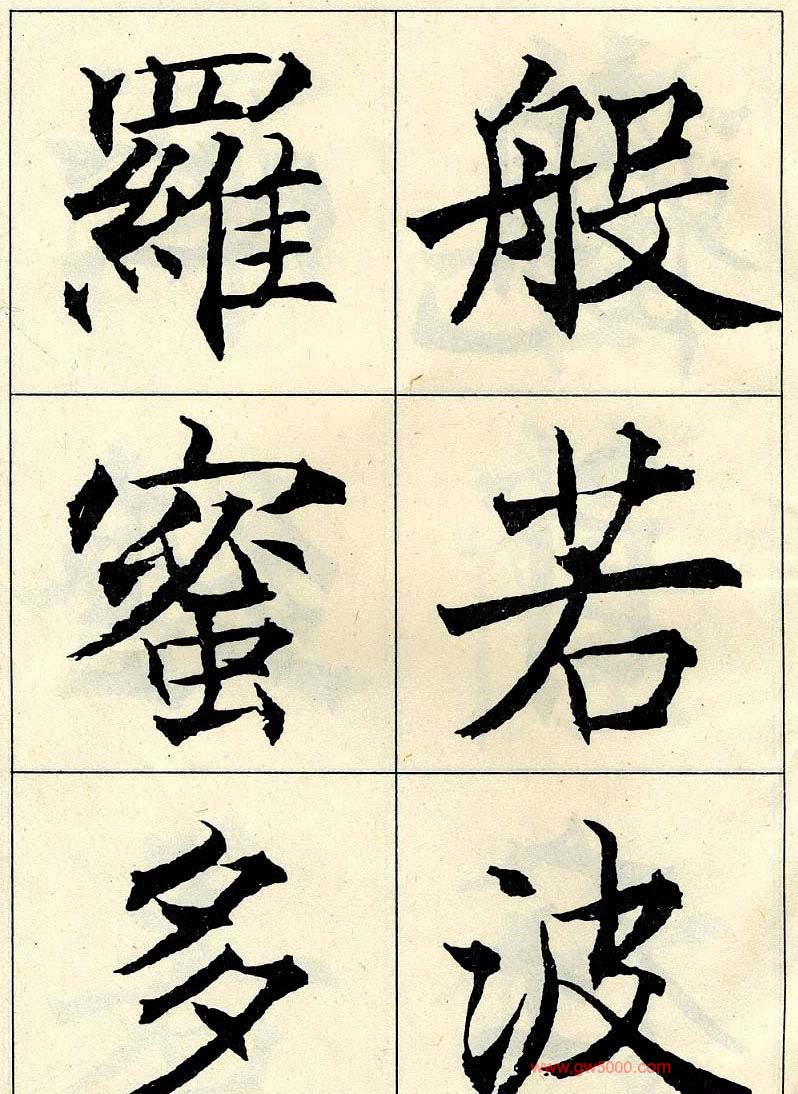 般若波
羅蜜多
www.gw5000.com